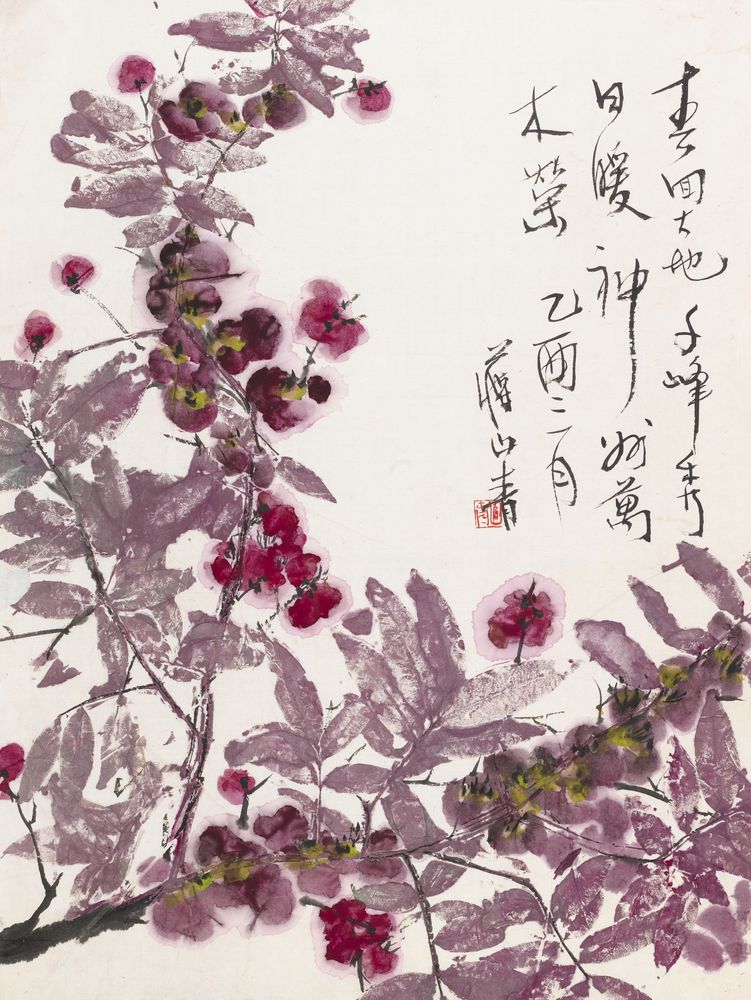 春回大地千峰秀
日暖神州萬
木榮
乙酉二月
蔣山青